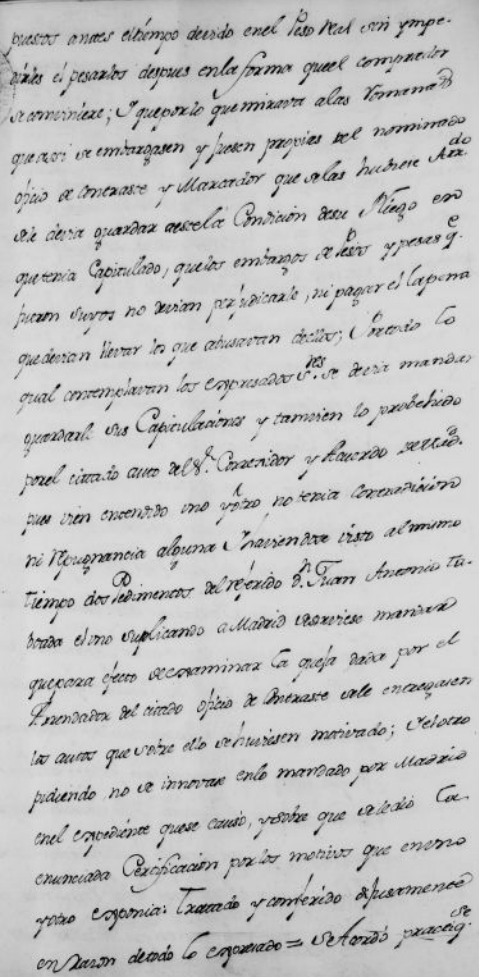 puestos antes el tiempo devido en el Peso Real sin ympe-
dirles el pesarlos despues en la forma que el comprador
se conviniere; Y que por lo que mirava a las Romanas
que assi se embargasen y fuesen propias del nominado
oficio de contraste y Marcador que se las huviere Arrdo
se le devia guardar a este la Condicion de su Pliego en
que tenia Capitulado, que los embargos de Pesos y pesas q.e
fueron suyos no devian perjudicarle, ni pagar el la pena
que devian llevar los que abusavan dellos; Por todo lo
qual contemplavan los expresados S.res se devia mandar
guardarle sus Capitulaciones y tamvien lo probehido
por el cittado auto del S.r Correxidor y Acuerdo de Mad.d
pues vien entendido uno y otro no tenia contradicion
ni Repugnancia alguna Y haviendose visto al mismo
tiempo dos Pedimentos del referido D.n Juan Antonio Tu-
dada el uno suplicando a Madrid se sirviese mandar
que para efecto de examinar la queja dada por el
Arrendador del citado oficio de Contraste se le entreguen
los autos que sobre ello se huviesen motivado; Y el otro
pidiendo no se innovare en lo mandado por Madrid
en el expediente que se causó, y sobre que se le dió la
enunciada Certificacion por los motivos que en uno
y otro exponia: Tratado y conferido difusamente
en razon de todo lo expresado = Se Acordó practiq.se